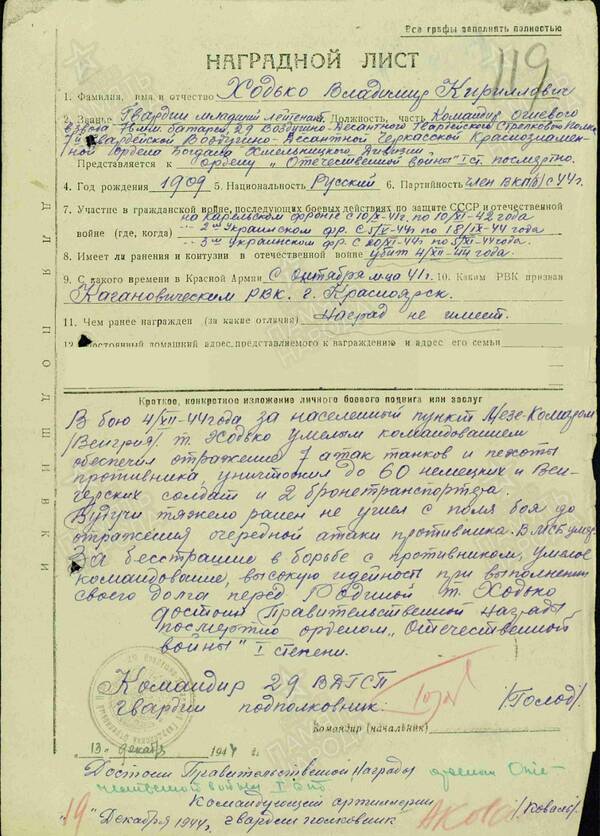 Все графы заполнять полностью
119
НАГРАДНОЙ ЛИСТ
1. Фамилия, имя и отчество Ходько Владимир Кириллович
2. Звание Гвардии младший лейтенант Должность, часть Командир огневого
взвода 76 м.м. батареи, 29 Воздушно-Десантного Гвардейского Стрелкового Полка
7й Гвардейской Воздушно-Десантной Черкасской Краснознамен-
ной Ордена Богдана Хмельницкого Дивизии
Представляется к ордену „Отечественной войны" I ст. посмертно.
4. Год рождения 1909 5. Национальность Русский 6. Партийность член ВКП/б/ с 44 г.
7. Участие в гражданской войне, последующих боевых действиях по защите СССР и отечественной
на Карельском фронте с 10/X-41г. по 10/XI-42 года
войне (где, когда) -"- 2ом Украинском фр. с 5/IX-44г по 18/IX-44 года
-"- 3ем Украинском фр. с 20/XI-44г по 5/XII-44 года.
8. Имеет ли ранения и контузии в отечественной войне убит 4/XII-44 года.
9. С какого времени в Красной Армии С Октября м-ца 41 г. 10. Каким РВК призван
Кагановическим РВК. г. Красноярск.
11. Чем ранее награжден (за какие отличия) Наград не имеет.
12. Постоянный домашний адрес представляемого к награждению и адрес его семьи
ДЛЯ ПОДШИВКИ
Краткое, конкретное изложение личного боевого подвига или заслуг
В бою 4/XII-44 года за населенный пункт Мезе-Комаром
/Венгрия/ т. Ходько умелым командованием
обеспечил отражение 7 атак танков и пехоты
противника, уничтожил до 60 немецких и Вен-
герских солдат и 2 бронетранспортера.
Будучи тяжело ранен не ушел с поля боя до
отражения очередной атаки противника. В МСБ умер.
За бесстрашие в борьбе с противником, умелое
командование, высокую идейность при выполнении
своего долга перед Родиной т. Ходько
достоин Правительственной Награды
посмертно орденом „Отечественной
войны" I степени.
Командир 29 ВДГСП
гвардии подполковник: /Голод/
Командир (начальник)
"13" декабря 1944 г.
Достоин Правительственной Награды орденом Оте-
чественной войны I ст
Командующий артиллерии
"19" Декабря 1944 г. гвардии полковник /Коваль/
ПАМЯТЬ НАРОДА